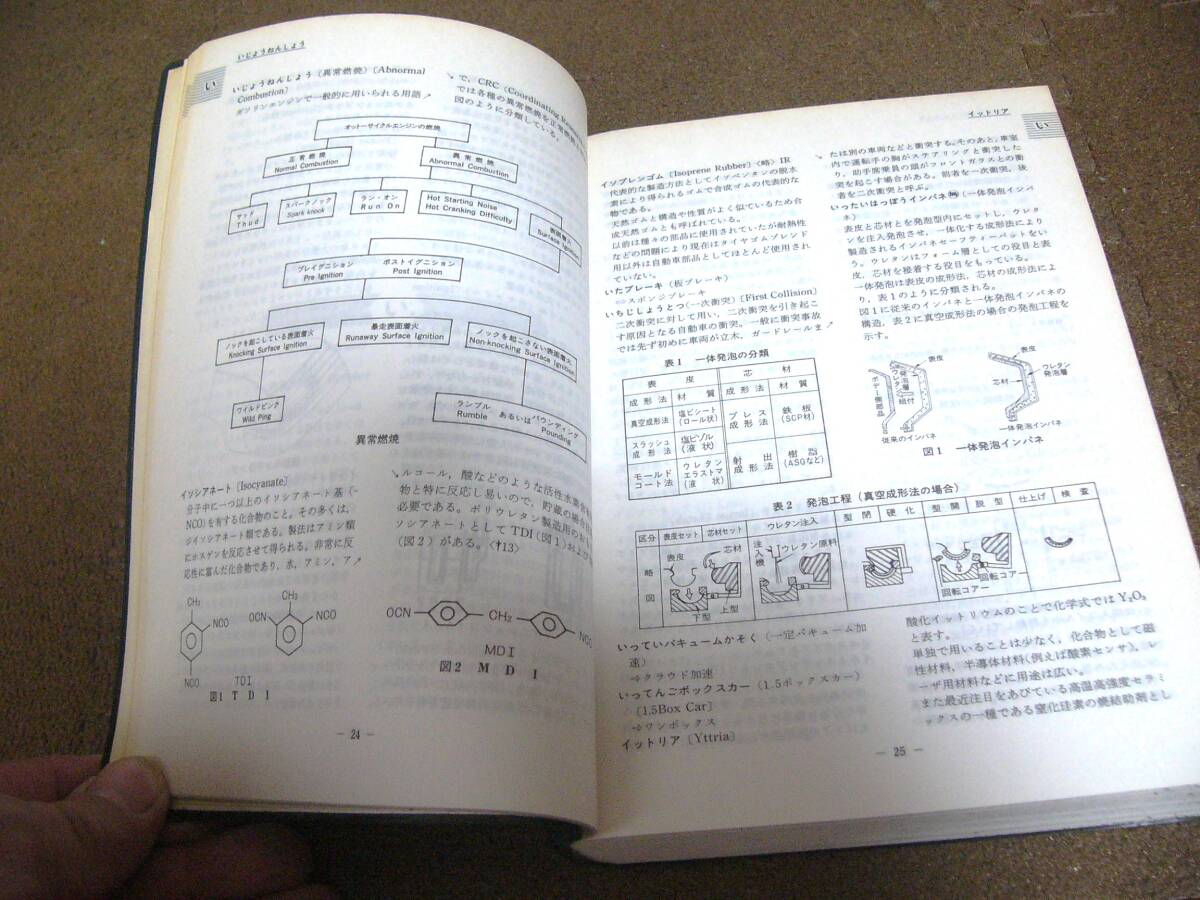 いじょうねんしょう
い
いじょうねんしょう（異常燃焼）〔Abnormal
Combustion〕
ガソリンエンジンで一般的に用いられる用語↗
↘で，CRC（Coordinating Research
では各種の異常燃焼を正常燃焼
図のように分類している。
オットーサイクルエンジンの燃焼
正常燃焼
Normal Combustion
異常燃焼
Abnormal Combustion
サッド
Thud
スパークノック
Spark knock
ラン・オン
Run On
Hot Starting Noise
Hot Cranking Difficulty
表面着火
Surface Ignition
プレイグニション
Pre Ignition
ポストイグニション
Post Ignition
ノックを起こしている表面着火
Knocking Surface Ignition
暴走表面着火
Runaway Surface Ignition
ノックを起こさない表面着火
Non-knocking Surface Ignition
ワイルドピンク
Wild Ping
ランブル あるいは パウンディング
Rumble Pounding
異常燃焼
イソシアネート〔Isocyanate〕
分子中に一つ以上のイソシアネート基（-
NCO）を有する化合物のこと。その多くは，
ジイソシアネート類である。製法はアミン類
にホスゲンを反応させて得られる。非常に反
応性に富んだ化合物であり，水，アミン，ア↗
↘ルコール，酸などのような活性水素
物と特に反応し易いので，貯蔵の場合
必要である。ポリウレタン製造用の
ソシアネートとしてTDI（図1）および
（図2）がある。（†13）
CH₃
NCO
NCO
CH₃
OCN
NCO
TDI
図1 T D I
OCN
CH₂
NCO
MDI
図2 M D I
－ 24 －
イットリア
い
イソプレンゴム〔Isoprene Rubber〕〈略〉IR
代表的な製造方法としてイソペンタンの脱水
素により得られるゴムで合成ゴムの代表的な
物である。
天然ゴムと構造や性質がよく似ているため合
成天然ゴムとも呼ばれている。
以前は種々の部品に使用されていたが耐熱性
などの問題により現在はタイヤゴムブレンド
用以外は自動車部品としてほとんど使用され
ていない。
いたブレーキ（板ブレーキ）
⇨スポンジブレーキ
いちじしょうとつ（一次衝突）〔First Collision〕
二次衝突に対して用い，二次衝突を引き起こ
す原因となる自動車の衝突。一般に衝突事故
では先ず初めに車両が立木，ガードレールま↗
↘たは別の車両などと衝突する。そのあと，車室
内で運転手の胸がステアリングと衝突した
り，助手席乗員の頭がフロントガラスとの衝
突を起こす場合がある。前者を一次衝突，後
者を二次衝突と呼ぶ。
いったいはっぽうインパネ（一体発泡インパ
ネ）
表皮と芯材とを発泡型内にセットし，ウレタ
ンを注入発泡させ，一体化する成形法により
製造されるインパネセーフティーペットをい
う。ウレタンはフォーム層としての役目と表
皮，芯材を接着する役目をもっている。
一体発泡は表皮の成形法，芯材の成形法によ
り，表1のように分類される。
図1に従来のインパネと一体発泡インパネの
構造，表2に真空成形法の場合の発泡工程を
示す。
表1 一体発泡の分類
表皮 芯材
成形法 材質 成形法 材質
真空成形法 塩ビシート（ロール状） プレス成形法 鉄板（SCP材）
スラッシュ成形法 塩ビゾル（液状） 射出成形法 樹脂（ASGなど）
モールドコート法 ウレタンエラストマ（液状）
表皮
ウレタン発泡層
ボデー側部品
組付
従来のインパネ
表皮
芯材
ウレタン発泡層
一体発泡インパネ
図1 一体発泡インパネ
表2 発泡工程（真空成形法の場合）
区分 表皮セット 芯材セット ウレタン注入 型閉 硬化 型開 脱型 仕上げ 検査
略図
表皮
芯材
下型
上型
注入機
ウレタン原料
回転コアー
回転コアー
いっていバキュームかそく（一定バキューム加
速）
⇨クラウド加速
いってんごボックスカー（1.5ボックスカー）
〔1.5Box Car〕
⇨ワンボックス
イットリア〔Yttria〕
酸化イットリウムのことで化学式ではY₂O₃
と表す。
単独で用いることは少なく，化合物として磁
性材料，半導体材料（例えば酸素センサ），レ
ーザ用材料などに用途は広い。
また最近注目をあびている高温高強度セラミ
ックスの一種である窒化珪素の焼結助剤とし
－ 25 －